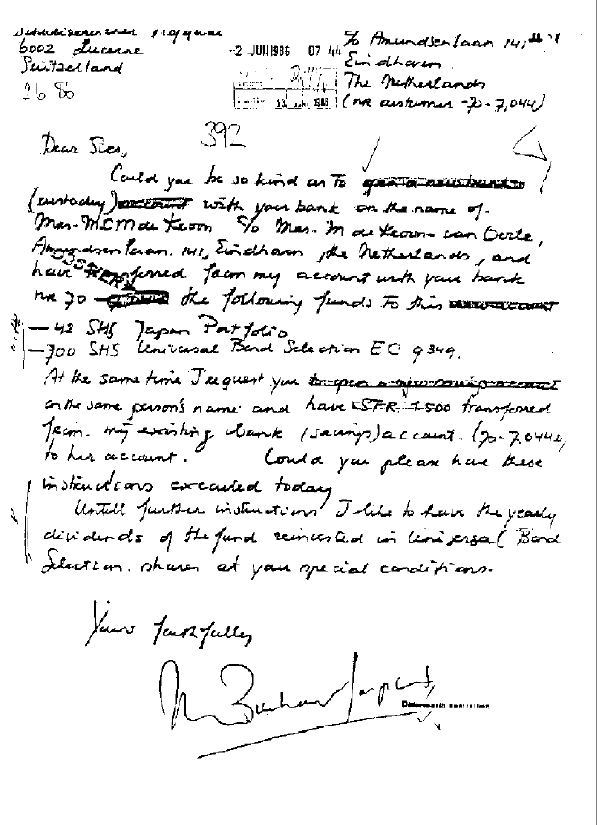 6002 Lucerne
Switzerland
26 86
-2 JUN 1986 07 44
% Amundsenlaan 141,
Eindhoven
The Netherlands
(nr customer -70-7,044)
392
Dear Sirs,
Could you be so kind as to open a new
(custody) account with your bank on the name of
Mrs. M de Kroon c/o Mrs. M de Kroon - van
Amundsenlaan. 141, Eindhoven, the Netherlands, and
have transferred from my account with your bank
nr 70 the following funds to this new account
- 48 SHS Japan Portfolio
- 700 SHS Universal Bond Selection EC 9349.
At the same time I request you to open a new saving account
on the same person's name and have SFR 1500 transferred
from my existing bank (savings) account. (70-7,044
to her account. Could you please have these
instructions executed today
Untill further instructions I like to have the yearly
dividends of the fund reinvested in Universal Bond
Selection. shares at your special conditions.
Yours faithfully